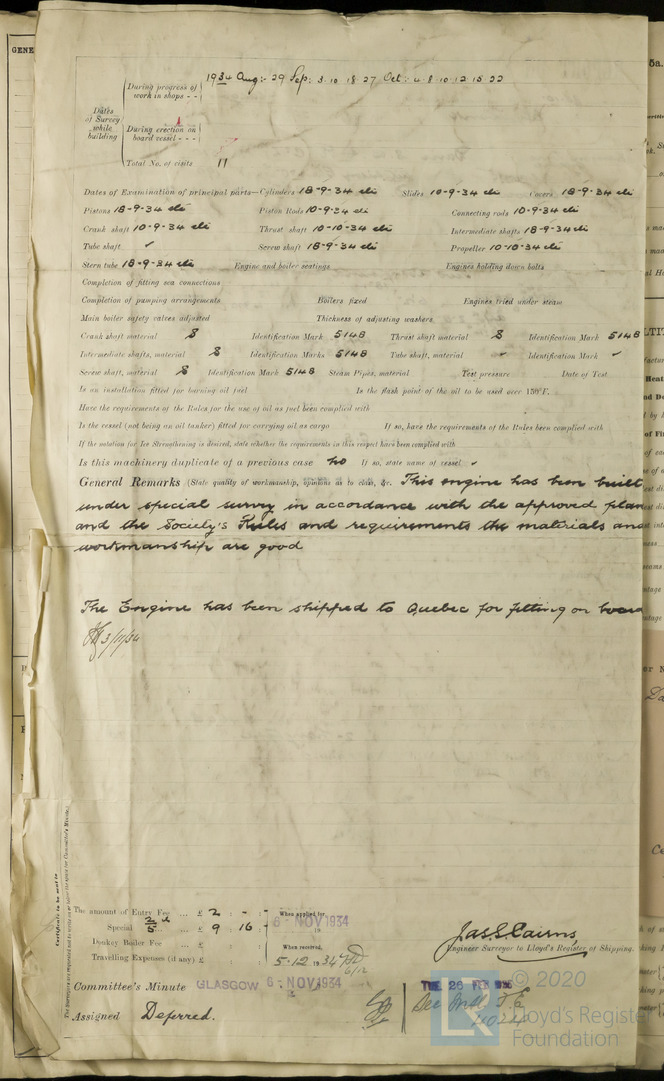 GENE
During progress of work in shops - - 1934 Aug:- 29 Sep: 3.10.18.27 Oct: 4.8.10.12.15.22
Dates of Survey while building
During erection on board vessel - - -
Total No. of visits 11
Dates of Examination of principal parts—Cylinders 18-9-34 Slides 10-9-34 Covers 18-9-34
Pistons 18-9-34 Piston Rods 10-9-34 Connecting rods 10-9-34
Crank shaft 10-9-34 Thrust shaft 10-10-34 Intermediate shafts 18-9-34
Tube shaft ✓ Screw shaft 18-9-34 Propeller 10-10-34
Stern tube 18-9-34 Engine and boiler seatings Engines holding down bolts
Completion of fitting sea connections
Completion of pumping arrangements Boilers fixed Engines tried under steam
Main boiler safety valves adjusted Thickness of adjusting washers
Crank shaft material S Identification Mark 5148 Thrust shaft material S Identification Mark 5148
Intermediate shafts, material S Identification Marks 5148 Tube shaft, material ✓ Identification Mark ✓
Screw shaft, material S Identification Mark 5148 Steam Pipes, material Test pressure Date of Test
Is an installation fitted for burning oil fuel Is the flash point of the oil to be used over 150°F.
Have the requirements of the Rules for the use of oil as fuel been complied with
Is the vessel (not being an oil tanker) fitted for carrying oil as cargo If so, have the requirements of the Rules been complied with
If the notation for Ice Strengthening is desired, state whether the requirements in this respect have been complied with
Is this machinery duplicate of a previous case no If so, state name of vessel ✓
General Remarks (State quality of workmanship, opinions as to class, &c. This engine has been built
under special survey in accordance with the approved plan
and the Society's Rules and requirements the materials and
workmanship are good
The Engine has been shipped to Quebec for fitting on board
3/11/34
Certificate to be sent to
The amount of Entry Fee ... £ 2 : - :
Special ... £ 9 : 16 :
Donkey Boiler Fee ... £ : :
Travelling Expenses (if any) £ : :
When applied for,
6-NOV 1934
When received,
5.12.1934
Jas. S. Cairns,
Engineer Surveyor to Lloyd's Register of Shipping.
Committee's Minute GLASGOW 6-NOV 1934
TUE. 26 FEB 1935
Assigned Deferred.
© 2020
Lloyd's Register
Foundation